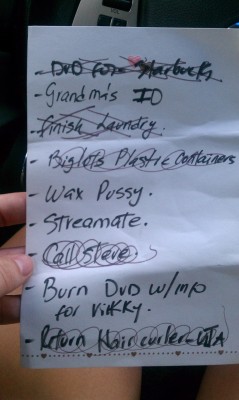 - DVD for Starbucks
- Grandma's ID
- Finish Laundry.
- Biglots Plastic Containers
- Wax Pussy.
- Streamate.
- Call Steve.
- Burn DVD w/
for Vikky.
- Return Hair curler -